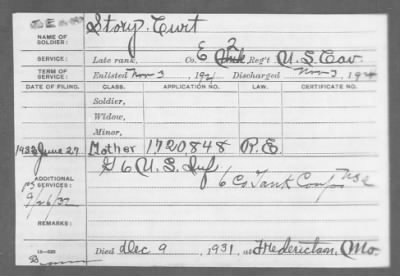 NAME OF SOLDIER: Story, Curt
SERVICE: Late rank, Co. E 2 Reg't U.S. Cav.
TERM OF SERVICE: Enlisted Nov 3, 192 Discharged Nov 3, 192
DATE OF FILING. CLASS. APPLICATION NO. LAW. CERTIFICATE NO.
Soldier,
Widow,
Minor,
1932 June 27 Mother 1720,848 R.E.
G 6 U.S. Inf
ADDITIONAL SERVICES: 6 Co Tank Corps
9/26/32
REMARKS:
Died Dec 9, 1931, at Fredericktown, Mo.